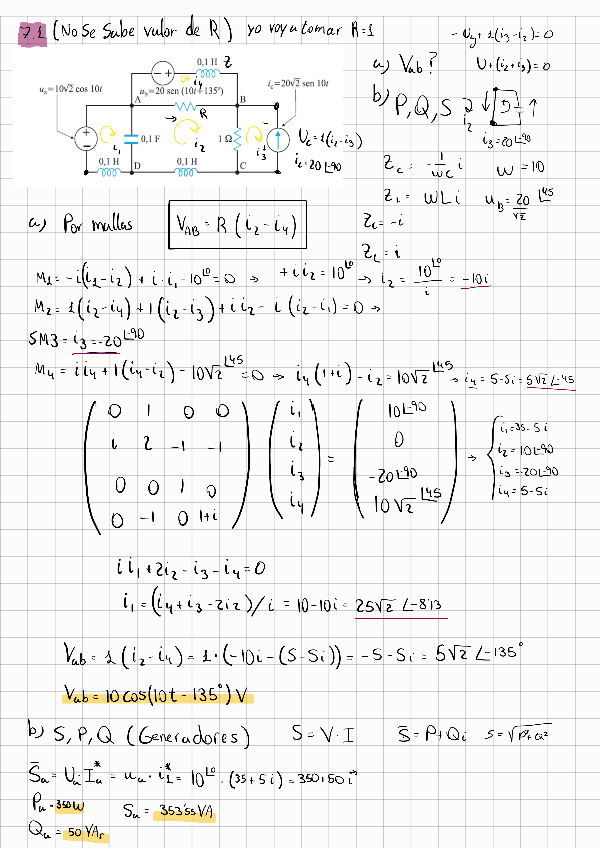 7.1 (No Se Sabe valor de R) yo voy a tomar R=1
-Uy+1(i3-i2)=0
a) Vab?
U+(i2+i3)=0
b) P, Q, S
i2
i3=20∠-90
0,1 H Z
i4
us=10√2 cos 10t
ub=20 sen (10t+135°)
ic=20√2 sen 10t
A
R
B
0,1 F
1 Ω
i1
i2
i3
Uc=1(i2-i3)
ic=20∠-90
0,1 H
D
0,1 H
C
Zc = -1/wc i
w=10
ZL = wLi
uB=20/√2 ∠45
Zc=-i
ZL=i
a) Por mallas
VAB = R(i2-i4)
M1=-i(i1-i2)+i·i1-10∠0=0 → +i i2=10∠0 → i2=10∠0/i=-10i
M2=1(i2-i4)+1(i2-i3)+i i2-i(i2-i1)=0 →
SM3=i3=-20∠-90
M4=i i4+1(i4-i2)-10√2∠45=0 → i4(1+i)-i2=10√2∠45 → i4=5-5i=5√2∠-45
0 1 0 0
i 2 -1 -1
0 0 1 0
0 -1 0 1+i
i1
i2
i3
i4
=
10∠-90
0
-20∠-90
10√2∠45
→
i1=35-5i
i2=10∠-90
i3=-20∠-90
i4=5-5i
i i1+2i2-i3-i4=0
i1=(i4+i3-2i2)/i=10-10i=25√2∠-8'13
Vab=1(i2-i4)=1·(-10i-(5-5i))=-5-5i=5√2∠-135°
Vab=10cos(10t-135°)V
b) S, P, Q (Generadores) S=V·I S̄=P+Qi S=√P²+Q²
S̄u=Uu·Iu*=uu·i1*=10∠0·(35+5i)=350+50i
Pu=350W
Su=353'55VA
Qu=50 VAr